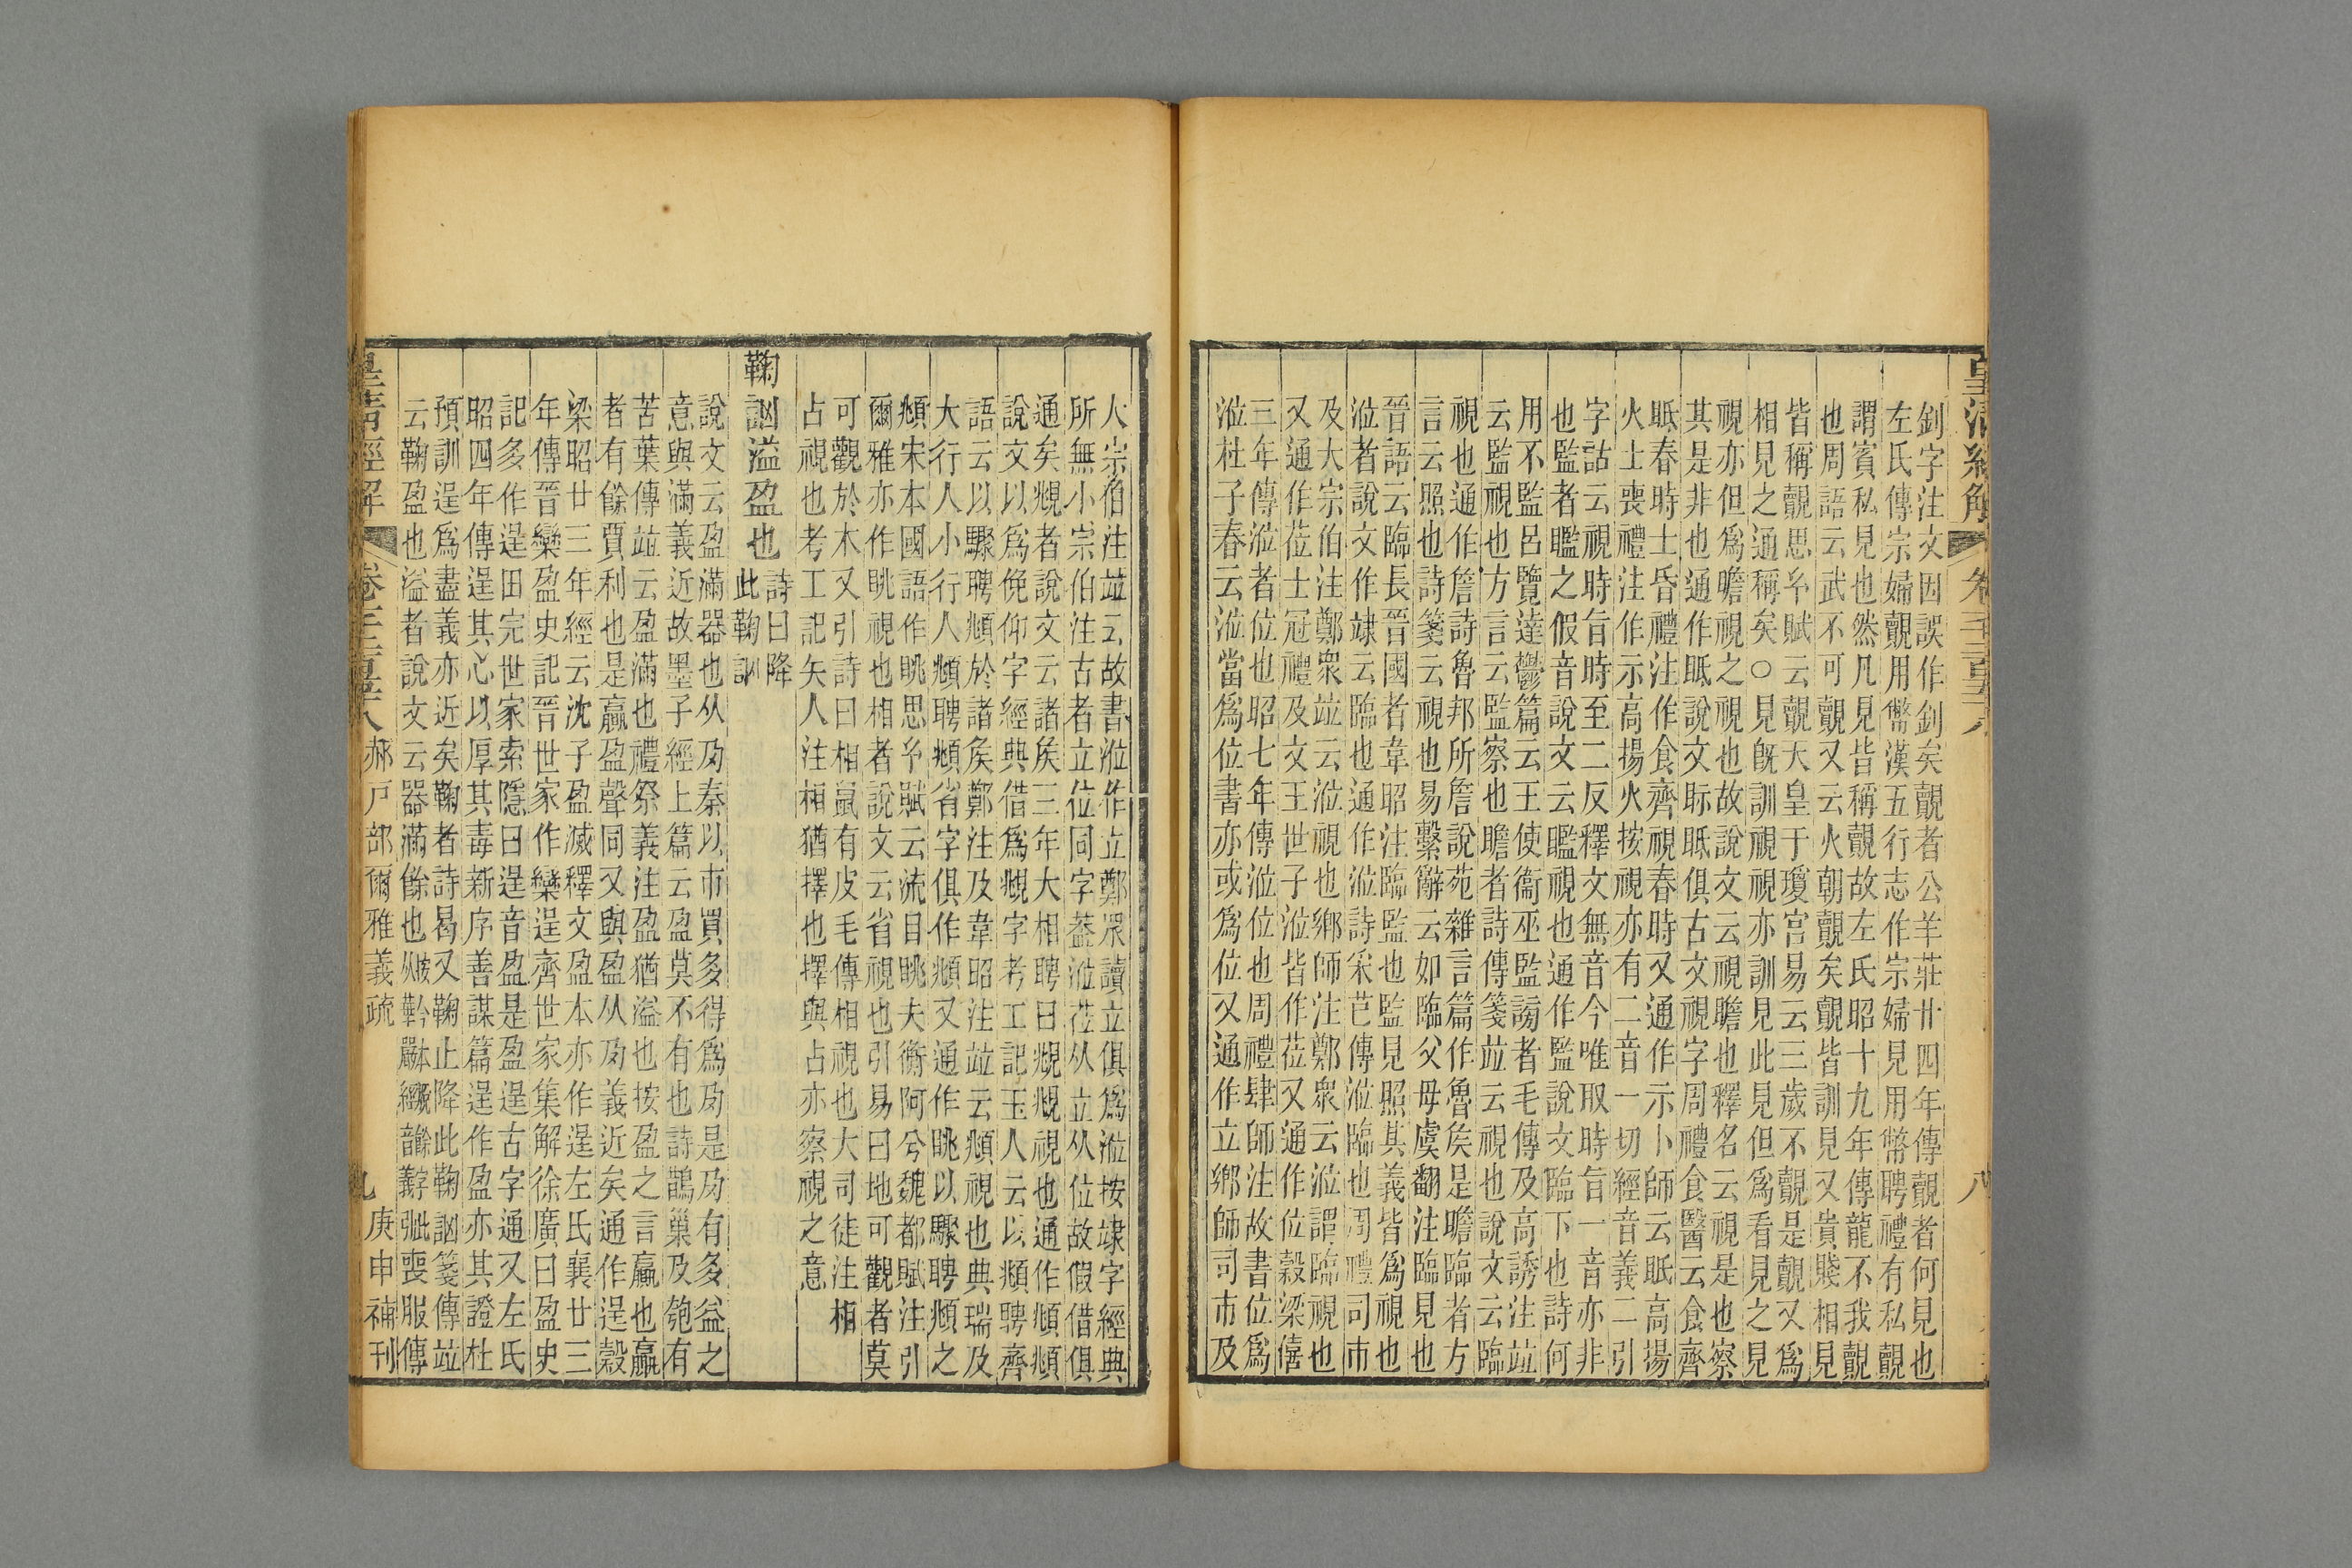 皇清經解
卷一千二百五十八
八
釗字注文因誤作釗矣覿者公羊莊廿四年傳覿者何見也
左氏傳宗婦覿用幣漢五行志作宗婦見用幣聘禮有私覿
謂賓私見也然凡見皆稱覿故左氏昭十九年傳龍不我覿
也周語云武不可覿又云火朝覿矣覿皆訓見又貴賤相見
皆稱覿思予賦云覿天皇于瓊宮易云三歲不覿是覿又爲
相見之通稱矣○見既訓視視亦訓見此見但爲看見之見
視亦但爲瞻視之視也故說文云視瞻也釋名云視是也察
其是非也通作眡說文眎眡俱古文視字周禮食醫云食齊
眡春時士昏禮注作食齊視春時又通作示卜師云眡高揚
火士喪禮注作示高揚火按視亦有二音一切經音義二引
字詁云視時旨時至二反釋文無音今唯取時旨一音亦非
也監者䁠之假音說文云䁠視也通作監說文臨下也詩何
用不監呂覽達鬱篇云王使衞巫監謗者毛傳及高誘注竝
云監視也方言云監察也瞻者詩傳箋竝云視也說文云臨
視也通作詹詩魯邦所詹說苑雜言篇作魯矦是瞻臨者方
言云照也詩箋云視也易繫辭云如臨父母虞翻注臨見也
晉語云臨長晉國者韋昭注臨監也監見照其義皆爲視也
涖者說文作䇐云臨也通作涖詩采芑傳涖臨也周禮司市
及大宗伯注鄭衆竝云涖視也鄉師注鄭衆云涖謂臨視也
又通作莅士冠禮及文王世子涖皆作莅又通作位穀梁僖
三年傳涖者位也昭七年傳涖位也周禮肆師注故書位爲
涖杜子春云涖當爲位書亦或爲位又通作立鄉師司市及
人宗伯注竝云故書涖作立鄭眾讀立俱爲涖按䇐字經典
所無小宗伯注古者立位同字葢涖莅从立从位故假借俱
通矣覜者說文云諸矦三年大相聘曰覜覜視也通作頫頫
說文以爲俛仰字經典借爲覜字考工記玉人云以頫聘齊
語云以驟聘頫於諸矦鄭注及韋昭注竝云頫視也典瑞及
大行人小行人頫聘頫省字俱作頫又通作眺以驟聘頫之
頫宋本國語作眺思予賦云流目眺夫衡阿兮魏都賦注引
爾雅亦作眺視也相者說文云省視也引易曰地可觀者莫
可觀於木又引詩曰相鼠有皮毛傳相視也大司徒注相
占視也考工記矢人注相猶擇也擇與占亦察視之意
鞠訩溢盈也
詩曰降
此鞠訩
說文云盈滿器也从夃秦以市買多得爲夃是夃有多益之
意與滿義近故墨子經上篇云盈莫不有也詩鵲巢及匏有
苦葉傳竝云盈滿也禮祭義注盈猶溢也按盈之言贏也贏
者有餘賈利也是贏盈聲同又與盈从夃義近矣通作逞穀
梁昭廿三年經云沈子盈滅釋文盈本亦作逞左氏襄廿三
年傳晉欒盈史記晉世家作欒逞齊世家集解徐廣曰盈史
記多作逞田完世家索隱曰逞音盈是盈逞古字通又左氏
昭四年傳逞其心以厚其毒新序善謀篇逞作盈亦其證杜
預訓逞爲盡義亦近矣鞠者詩曷又鞠止降此鞠訩箋傳竝
云鞠盈也溢者說文云器滿餘也
皇清經解
卷一千二百五十八
郝戸部爾雅義疏
九
庚申補刊